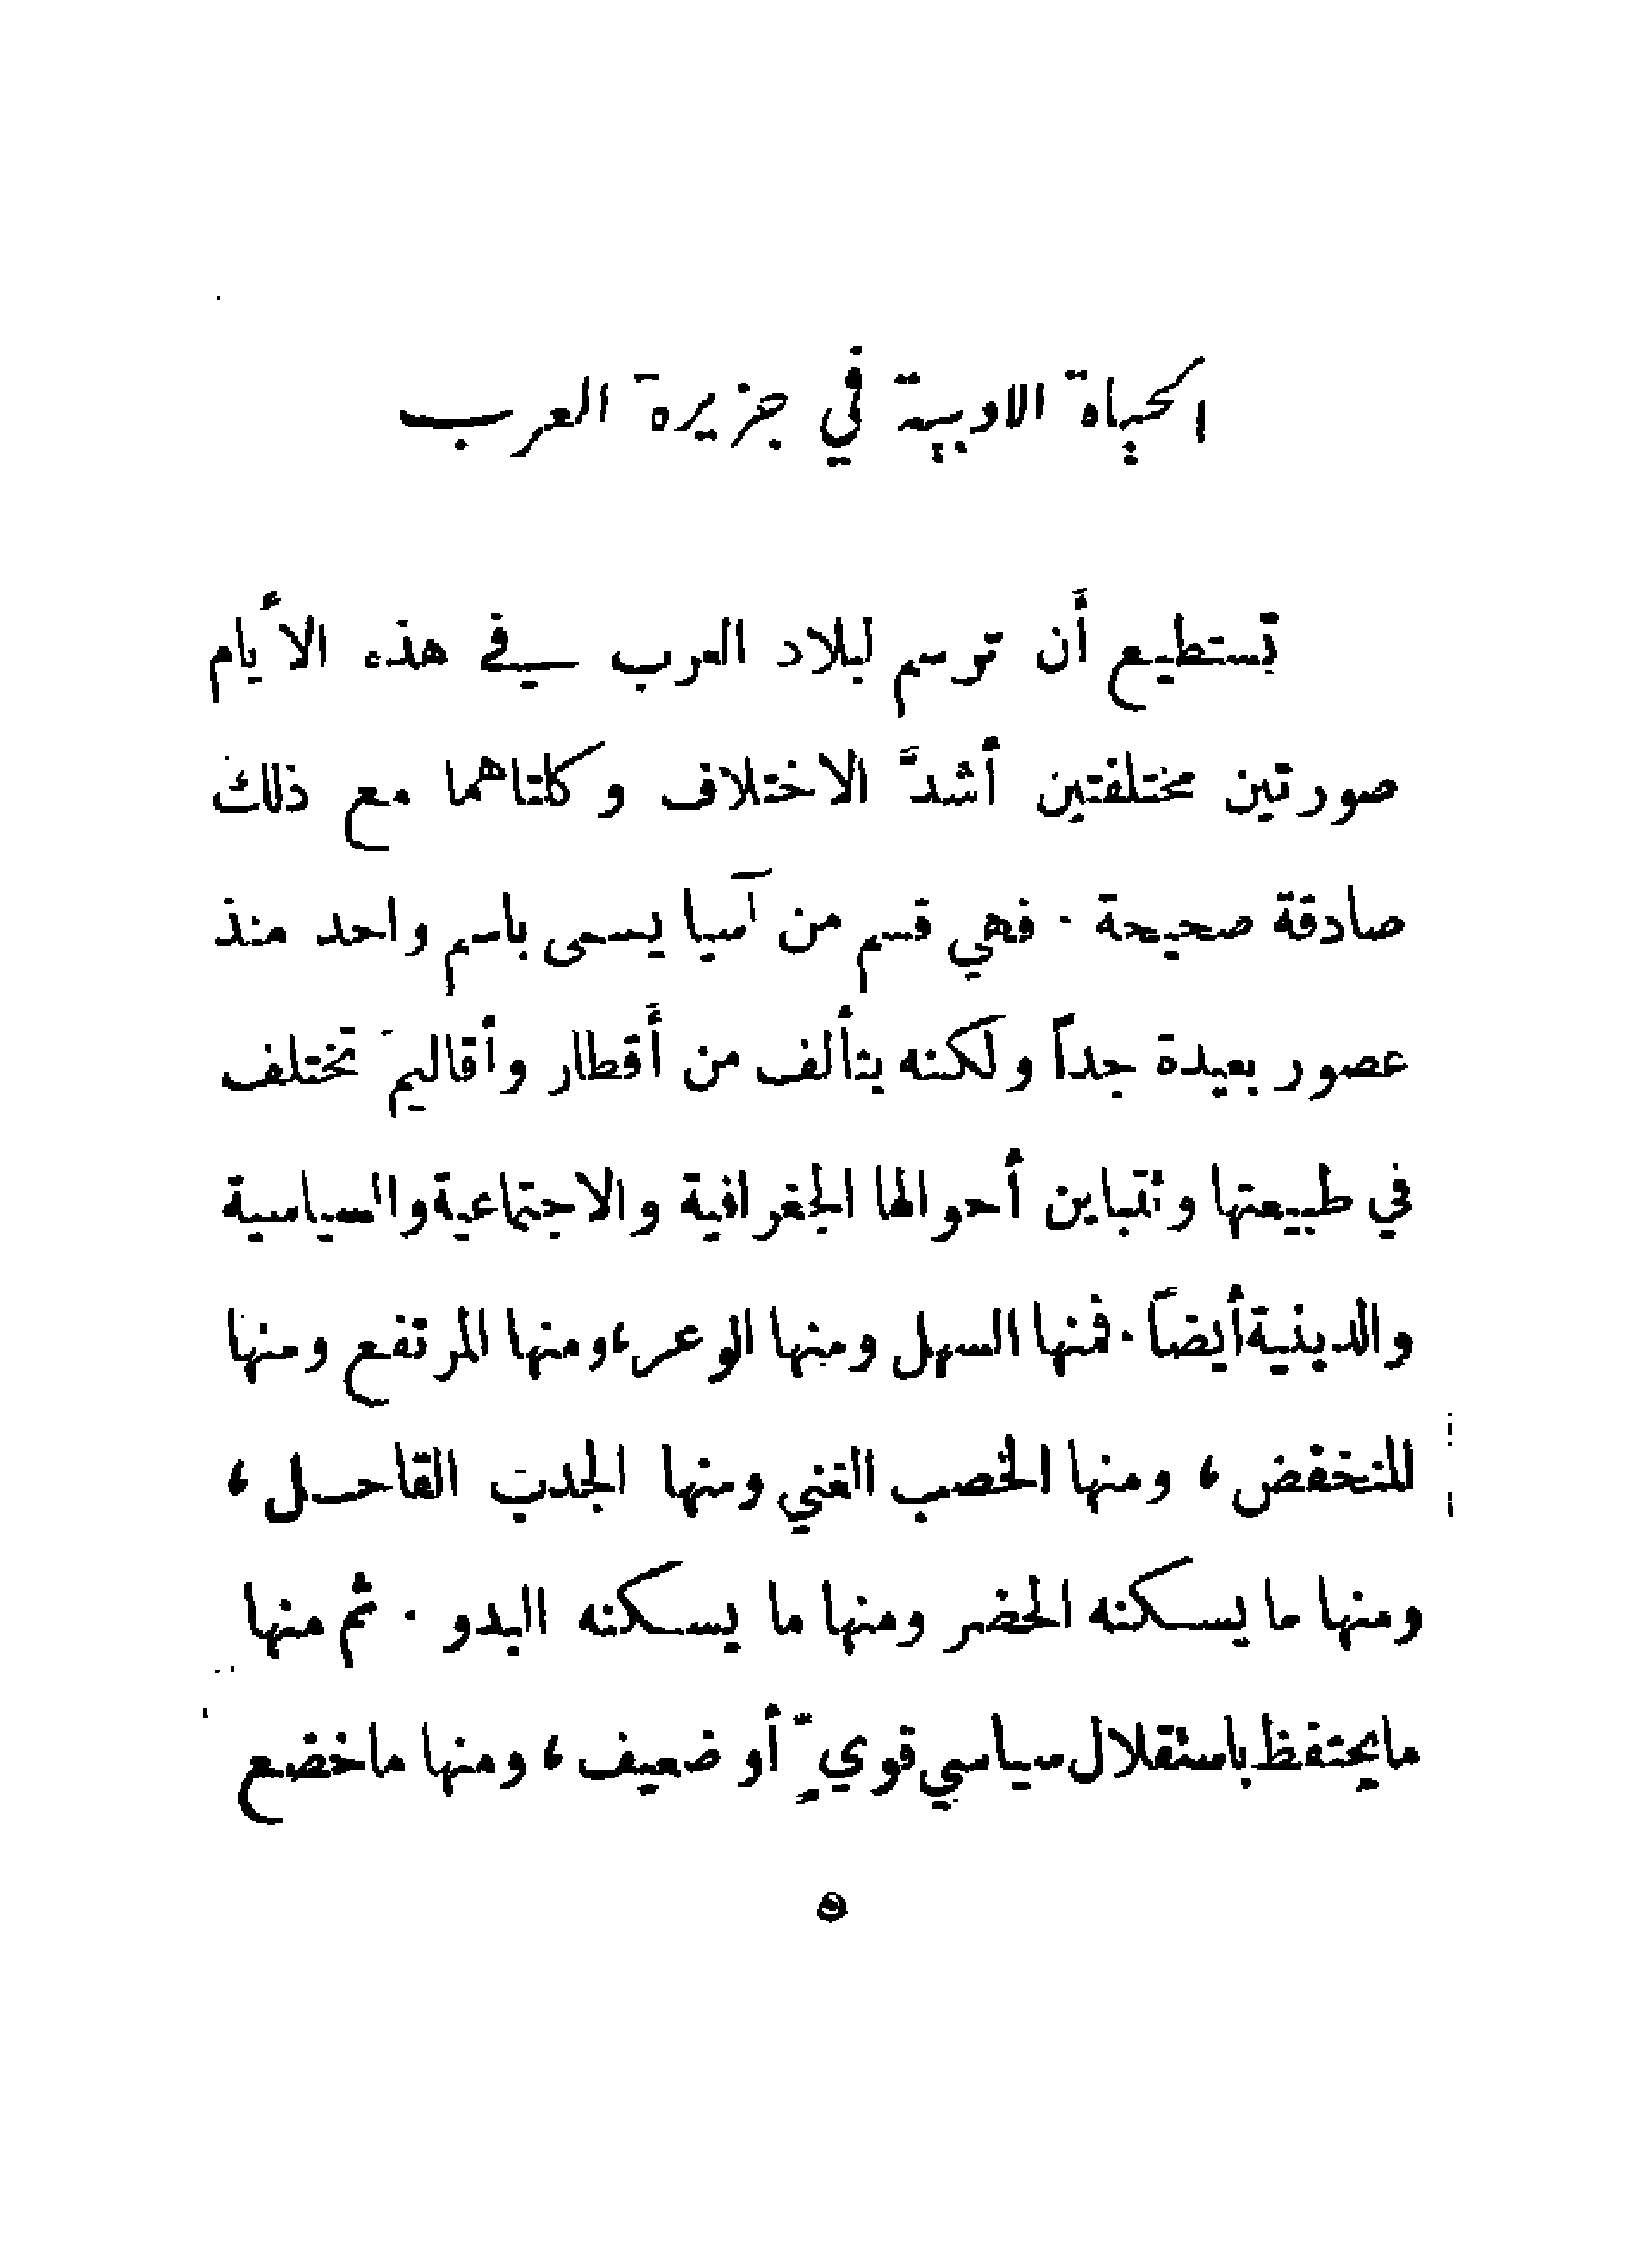 الحياة الادبية في جزيرة العرب
تستطيع أن ترسم لبلاد العرب في هذه الأيام
صورتين مختلفتين أشدَّ الاختلاف وكلتاهما مع ذلك
صادقة صحيحة . فهي قسم من آسيا يسمى باسم واحد منذ
عصور بعيدة جداً ولكنه يتألف من أقطار وأقاليمَ تختلف
في طبيعتها وتتباين أحوالها الجغرافية والاجتماعية والسياسية
والدينية أيضاً . فمنها السهل ومنها الوعر، ومنها المرتفع ومنها
المنخفض ، ومنها الخصب الغني ومنها الجدب القاحل ،
ومنها ما يسكنه الحضر ومنها ما يسكنه البدو . ثم منها
ما يحتفظ باستقلال سياسي قويٍّ أو ضعيف ، ومنها ما خضع
٥